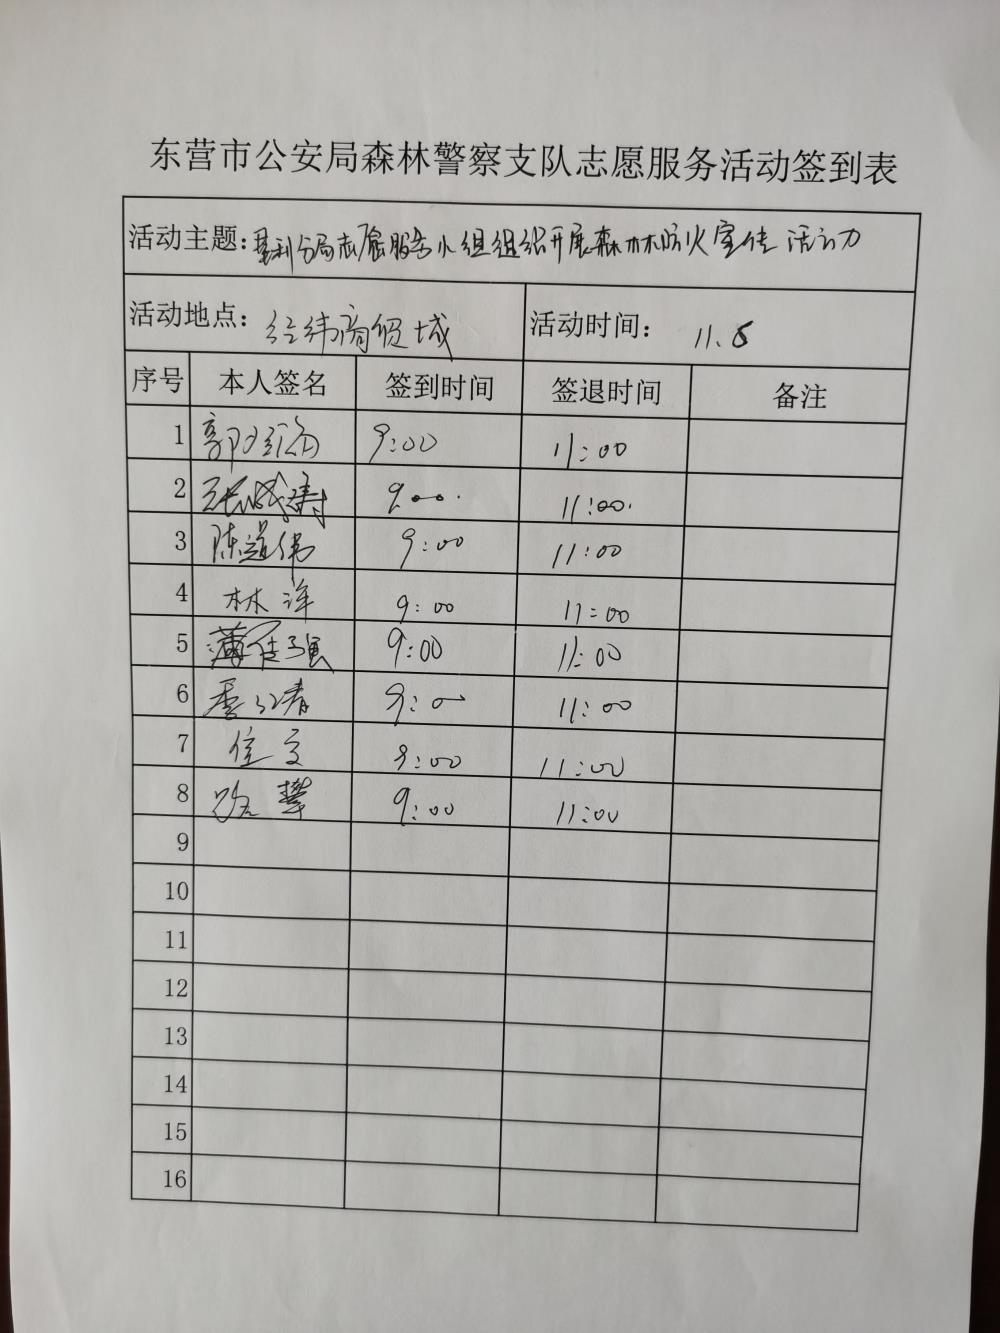 东营市公安局森林警察支队志愿服务活动签到表
活动主题：垦利分局志愿服务小组组织开展森林防火宣传活动
活动地点：经纬商贸城 活动时间：11.5
序号 本人签名 签到时间 签退时间 备注
1 郭 9:00 11:00
2 张 9:00 11:00
3 陈道伟 9:00 11:00
4 林洋 9:00 11:00
5 薄佳强 9:00 11:00
6 李江春 9:00 11:00
7 9:00 11:00
8 路 9:00 11:00
9
10
11
12
13
14
15
16